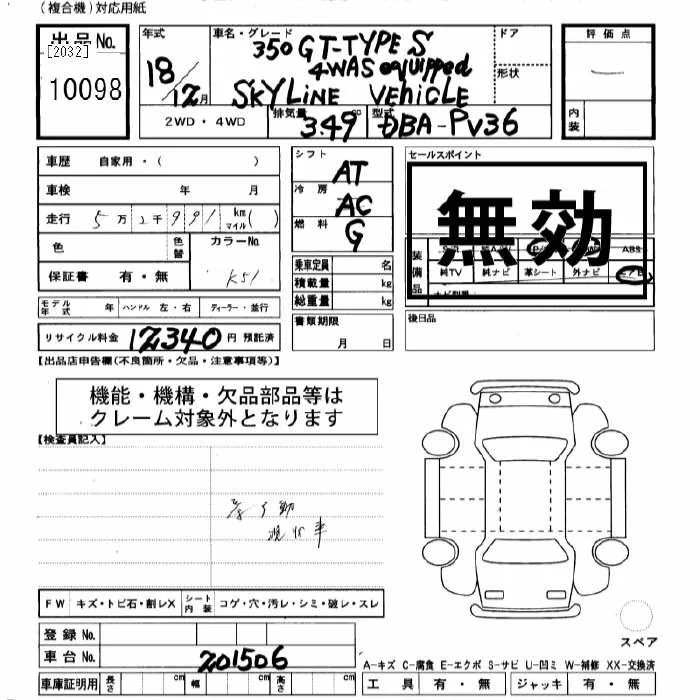 (複合機)対応用紙
出品No.
[2032]
10098
年式
18/12月
車名・グレード
350 GT-TYPE S
4WAS equipped
SKYLINE VEHICLE
ドア
形状
評価点
内装
2WD・4WD
排気量
3.49
cc
型式
DBA-PV36
車歴 自家用・( )
車検 年 月
走行 5万2千991 km マイル( )
色
色替
カラーNo.
K51
保証書 有・無
モデル年式 年 ハンドル 左・右 ディーラー・並行
リサイクル料金 12340 円 預託済
シフト
AT
冷房
AC
燃料
G
乗車定員 名
積載量 kg
総重量 kg
書類期限
月 日
セールスポイント
無効
装備品
ABS
純TV 純ナビ 革シート 外ナビ
後日品
【出品店申告欄(不良箇所・欠品・注意事項等)】
機能・機構・欠品部品等は
クレーム対象外となります
【検査員記入】
FW キズ・トビ石・割レX シート内装 コゲ・穴・汚レ・シミ・破レ・スレ
登録No.
車台No. 201506
車庫証明用 長さ cm 幅 cm 高さ cm
スペア
A-キズ C-腐食 E-エクボ S-サビ U-凹ミ W-補修 XX-交換済
工具 有・無 ジャッキ 有・無